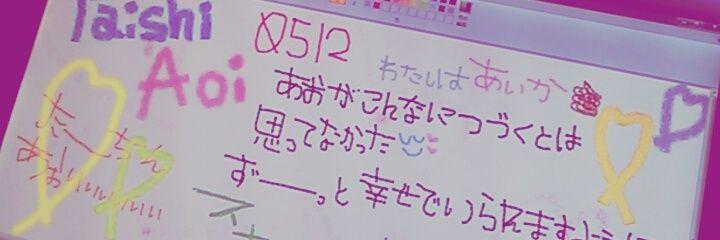 Taishi
Aoi
0512
あいか
あおがこんなにつづくとは
思ってなかった
ずーーっと 幸せでいられますように
だーちん
あおいいいいい